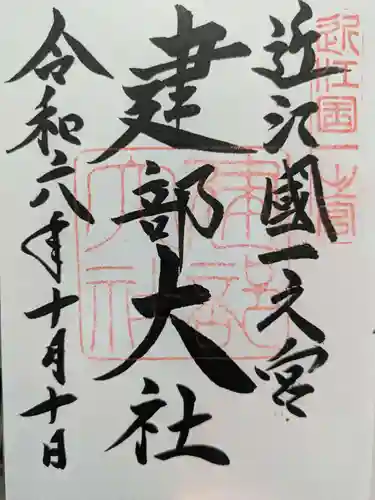 近江國一之宮
建部大社
令和六年十月十日
近江国一宮
建部大社